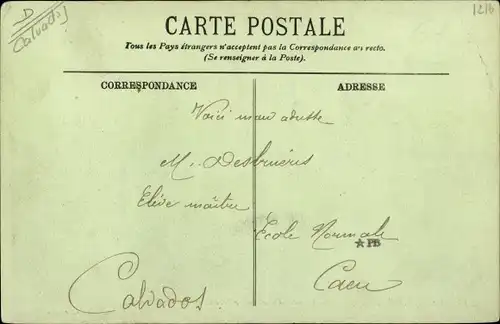 D
Calvados
1216
CARTE POSTALE
Tous les Pays étrangers n'acceptent pas la Correspondance au recto.
(Se renseigner à la Poste).
CORRESPONDANCE
ADRESSE
Voici mon adresse
M. Desbruères
Elève maître
École Normale
★ PB
Caen
Calvados